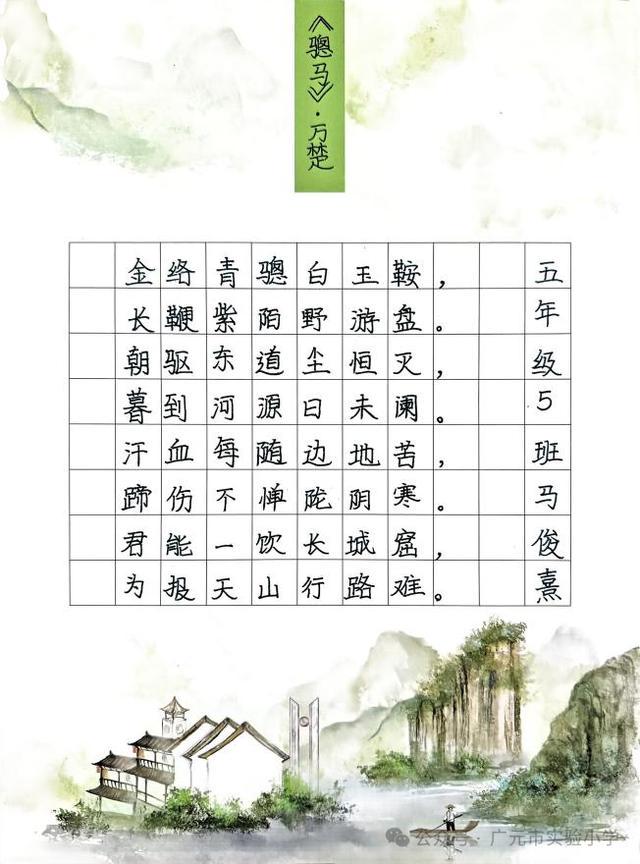 《骢马》·万楚
金络青骢白玉鞍，
长鞭紫陌野游盘。
朝驱东道尘恒灭，
暮到河源日未阑。
汗血每随边地苦，
蹄伤不惮陇阴寒。
君能一饮长城窟，
为报天山行路难。
五年级5班马俊熹
公众号·广元市实验小学